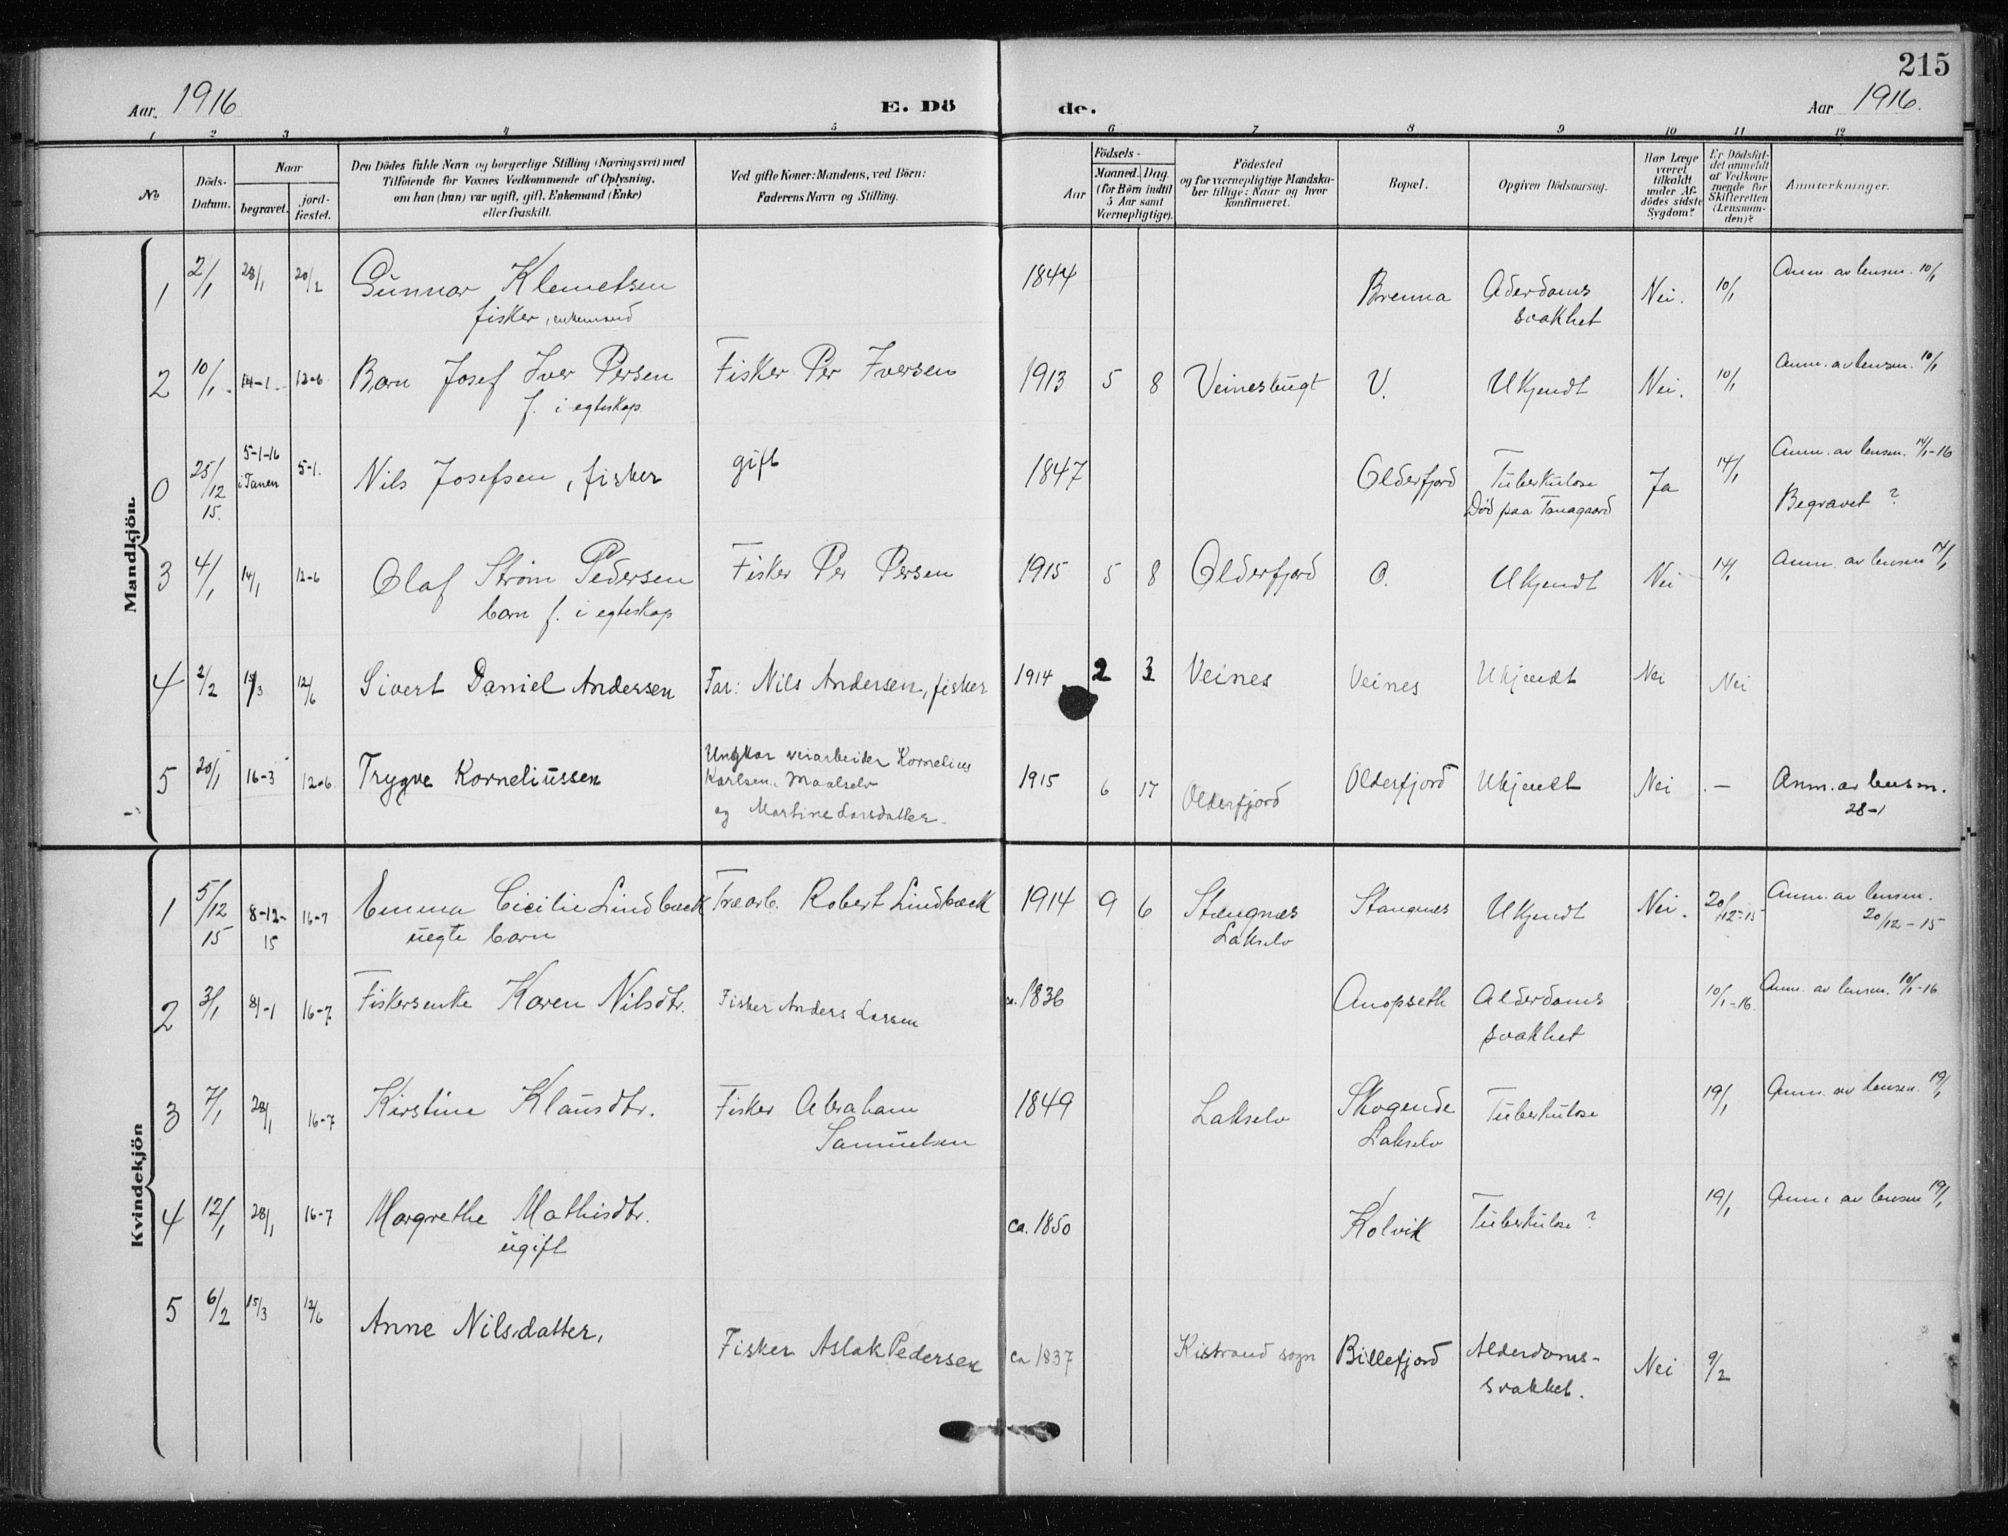 215
Aar. 1916 E. Dö de. Aar 1916.
1 2 3 4 5 6 7 8 9 10 11 12
No
Döds-Datum.
Naar
begravet. jord-fæstet.
Den Dödes fulde Navn og borgerlige Stilling (Næringsvei) med
Tilföiende for Voxnes Vedkommende af Oplysning,
om han (hun) var ugift, gift, Enkemand (Enke)
eller fraskilt.
Ved gifte Koner: Mandens, ved Börn:
Faderens Navn og Stilling.
Födsels-
Aar
Maaned. Dag.
(for Börn indtil
5 Aar samt
Værnepligtige).
Födested
og for værnepligtige Mandska-
ber tillige: Naar og hvor
konfirmeret.
Bopæl.
Opgiven Dödsaarsag.
Har Læge
været
tilkaldt
under Af-
dödes sidste
Sygdom?
Er Dödsfal-
det anmeldt
af Vedkom-
mende for
Skifteretten
(Lensman-
den)?
Anmærkninger.
Mandkjön.
1 2/1 28/1 20/2 Gunnar Klemetsen 1844 Brenna Alderdoms Nei. 10/1 Anm. av lensm. 10/1
fisker, enkemand svakhet
2 10/1 14-1 12-6 Barn Josef Iver Persen Fisker Per Iversen 1913 5 8 Veinesbugt V. Ukjendt Nei. 10/1 Anm. av lensm. 10/1
f. i egteskap.
0 25/12 15. 5-1-16 i Tanen 5-1. Nils Josefsen, fisker gift 1847 Olderfjord Tuberkulose Ja 14/1 Anm. av lensm. 14/1-16
Död paa Tanagaard Begravet?
3 4/1 14/1 12-6 Olaf Strøm Pedersen Fisker Per Persen 1915 5 8 Olderfjord O. Ukjendt Nei 14/1 Anm. av lensm 14/1
barn f. i egteskap
4 2/2 /3 12/6 Sivert Daniel Andersen Far: Nils Andersen, fisker 1914 2 3 Veines Veines Ukjendt Nei Nei
5 20/1 16-3 12-6. Trygve Korneliussen Ungkar veiarbeider Kornelius
Karlsen, Maalselv
og Martine Larsdatter.
1915 6 17 Olderfjord Olderfjord Ukjendt Nei. - Anm. av lensm.
28-1
Kvindekjön
1 5/12 15 8-12-15 16-7 Emma Cicilie Lindbæck Træarb. Robert Lindbæck 1914 9 6 Stangnæs Stangnæs Ukjendt Nei. 20/12-15 Anm. av lensm.
uegte barn Lakselv 20/12-15
2 3/1 8/-1 16-7 Fiskersenke Karen Nilsdtr. Fisker Anders Larsen ca. 1836 Anopseth Alderdoms 10/1-16. Anm. av lensm. 10/1-16
svakhet
3 7/1 28/1 16-7 Kirstine Klausdtr. Fisker Abraham 1849 Lakselv Skogende Tuberkulose 19/1 Anm. av lensm. 19/1
Samuelsen Lakselv
4 12/1 28/1 16-7 Margrethe Mathisdtr. ca. 1850 Kolvik Tuberkulose? 19/1 Anm. av lensm 19/1
ugift
5 6/2 15/3 12/6 Anne Nilsdatter, Fisker Aslak Pedersen ca 1837 Kistrand sogn Billefjord Alderdoms- Nei 9/2
svakhet.